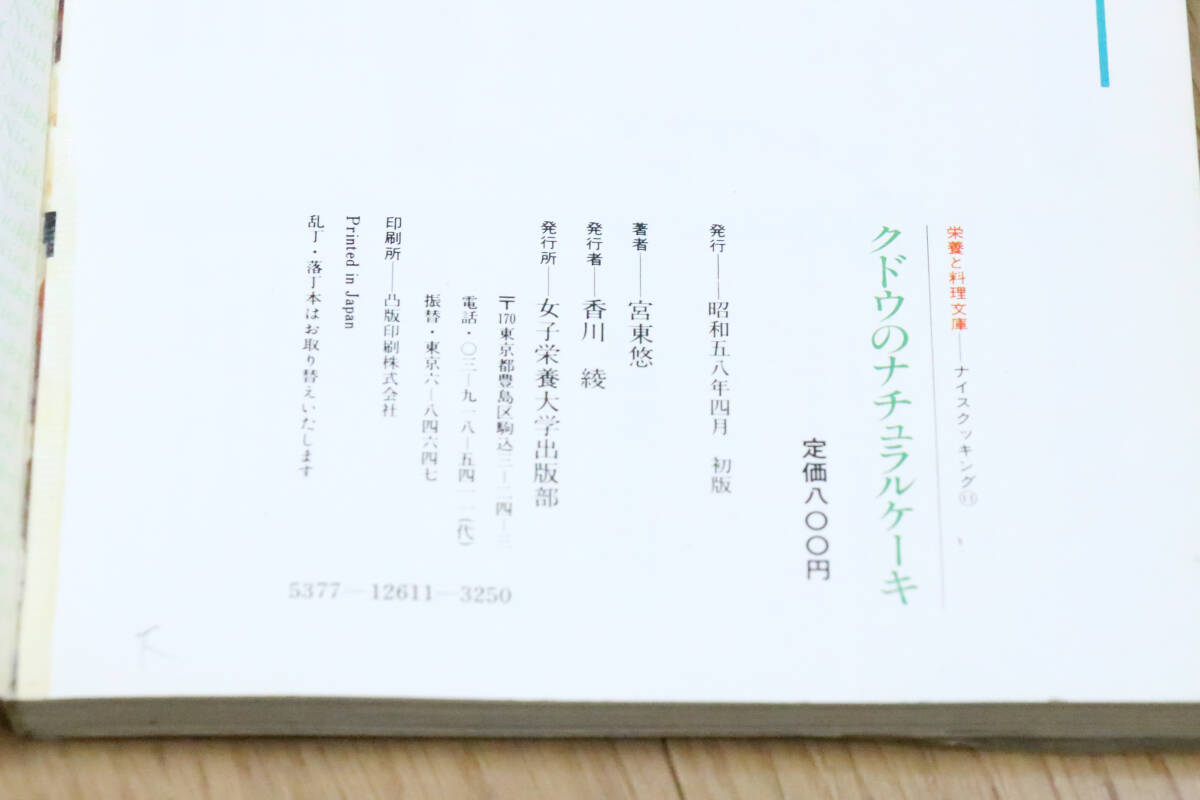 栄養と料理文庫――ナイスクッキング⑪
クドウのナチュラルケーキ
定価八〇〇円
発行――昭和五八年四月 初版
著者――宮東悠
発行者――香川 綾
発行所――女子栄養大学出版部
〒170東京都豊島区駒込三―二四―三
電話・〇三―九一八―五四一一(代)
振替・東京六―八四六四七
印刷所――凸版印刷株式会社
Printed in Japan
乱丁・落丁本はお取り替えいたします
5377―12611―3250